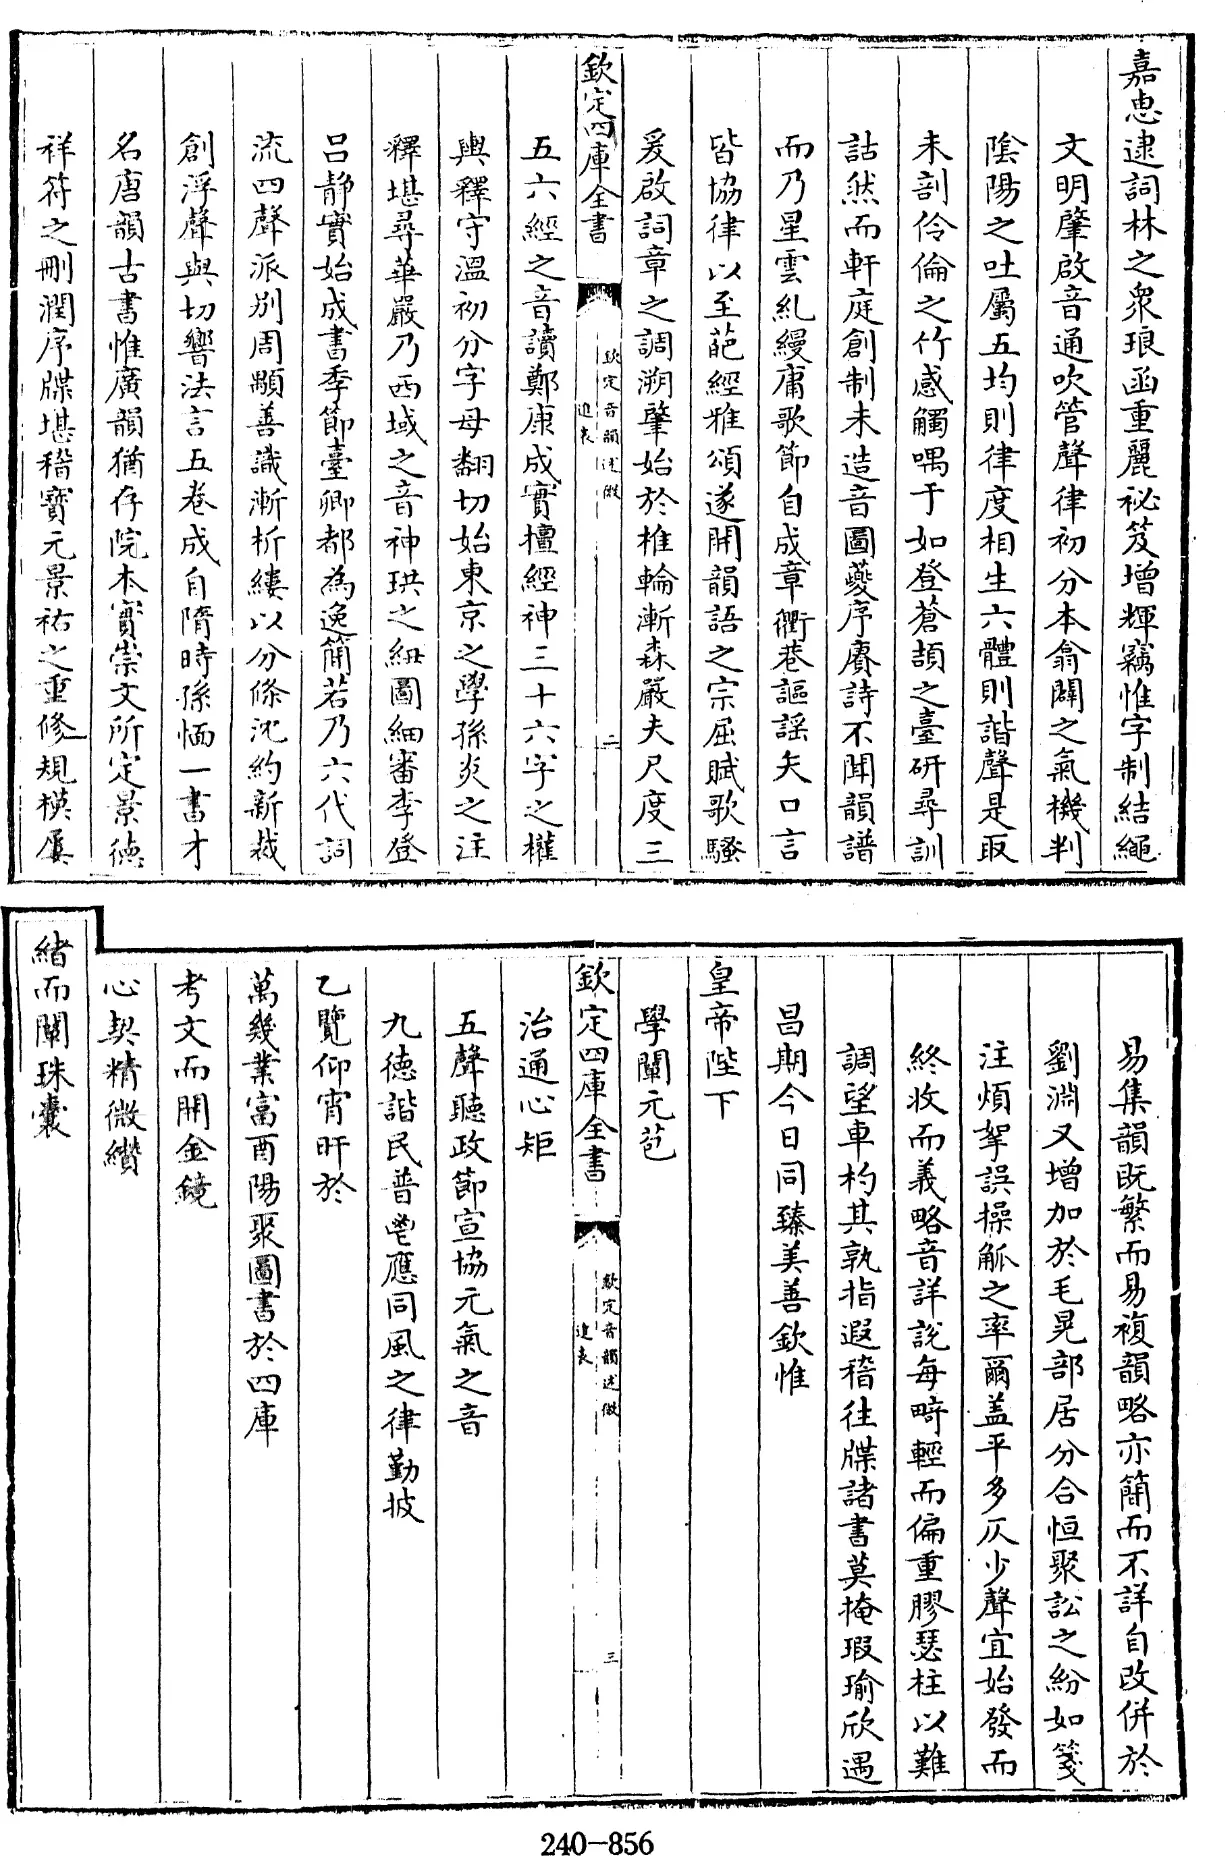 嘉惠逮詞林之衆琅函重麗祕笈增輝竊惟字制結繩
文明肇啟音通吹管聲律初分本翕闢之氣機判
陰陽之吐屬五均則律度相生六體則諧聲是取
未剖伶倫之竹感觸喁于如登蒼頡之臺研尋訓
詁然而軒庭創制未造音圖夔序賡詩不聞韻譜
而乃星雲糺縵庸歌節自成章衢巷謳謡矢口言
皆協律以至葩經雅頌遂開韻語之宗屈賦歌騷
爰啟詞章之調溯肇始於椎輪漸森嚴夫尺度三
欽定四庫全書
欽定音韻述微
進表
二
五六經之音讀鄭康成實擅經神三十六字之權
輿釋守温初分字母翻切始東京之學孫炎之注
釋堪尋華嚴乃西域之音神珙之紐圖細審李登
吕静實始成書季節臺卿都為逸簡若乃六代詞
流四聲派别周顒善識漸析縷以分條沈約新裁
創浮聲與切響法言五卷成自隋時孫愐一書才
名唐韻古書惟廣韻猶存院本實崇文所定景德
祥符之刪潤序牒堪稽寶元景祐之重修規模屢
易集韻既繁而易複韻略亦簡而不詳自改併於
劉淵又增加於毛晃部居分合恒聚訟之紛如箋
注煩挐誤操觚之率爾盖平多仄少聲宜始發而
終收而義略音詳説每畸輕而偏重膠瑟柱以難
調望車杓其孰指遐稽往牒諸書莫掩瑕瑜欣遇
昌期今日同臻美善欽惟
皇帝陛下
學闡元苞
欽定四庫全書
欽定音韻述微
進表
三
治通心矩
五聲聽政節宣協元氣之音
九德諧民普鬯應同風之律勤披
乙覽仰宵旰於
萬幾業富酉陽聚圖書於四庫
考文而開金鏡
心契精微纘
緒而闡珠囊
240-856